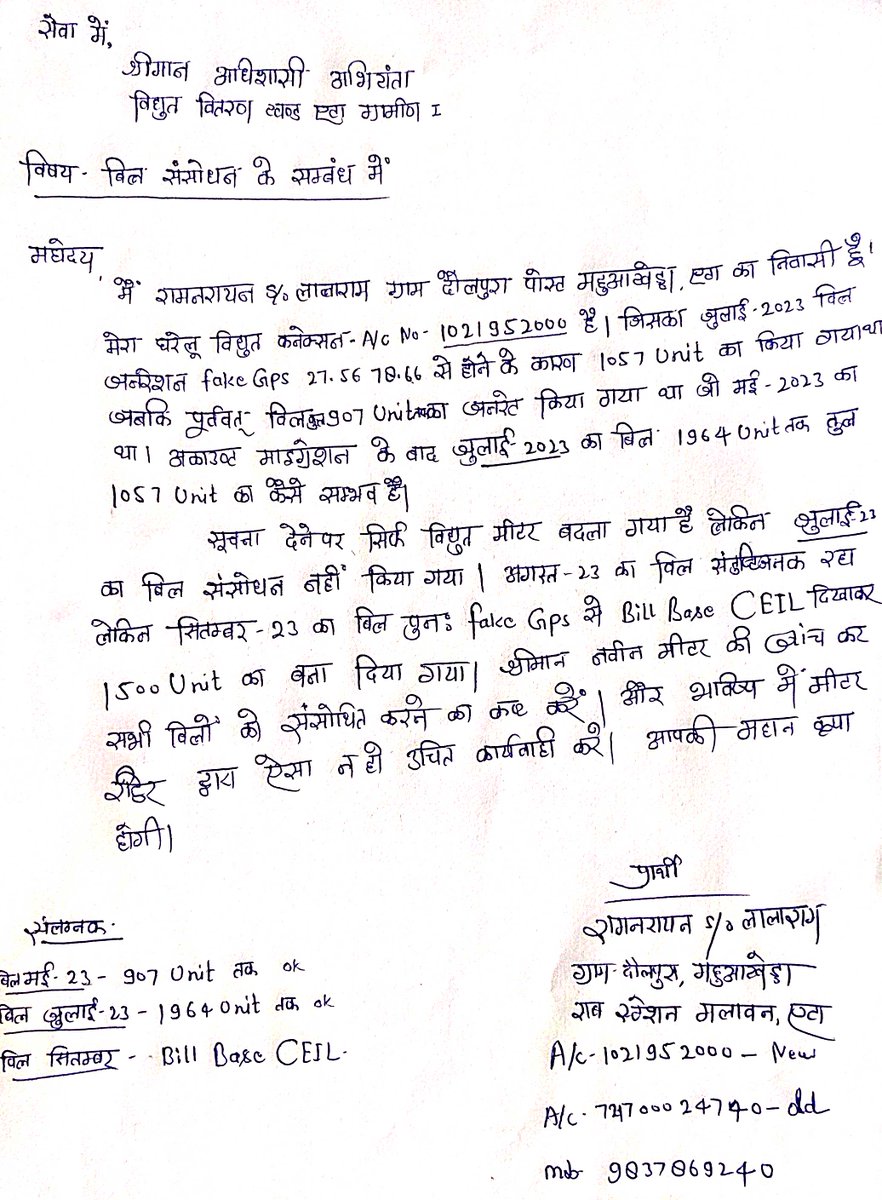 सेवा में,
श्रीमान अधिशासी अभियंता
विद्युत वितरण खण्ड एटा ग्रामीण I
विषय - बिल संसोधन के सम्बंध में
महोदय,
मैं रामनरायन s/o लालाराम ग्राम दौलपुरा पोस्ट महुआखेड़ा, एटा का निवासी हूँ।
मेरा घरेलू विद्युत कनेक्सन - A/c No - 1021952000 है। जिसका जुलाई - 2023 बिल
जनरेशन fake Gps 27.56 78.66 से होने के कारण 1057 Unit का किया गया था
जबकि पूर्ववत् बिल 907 Unit का जनरेट किया गया था जो मई - 2023 का
था। अकाउण्ट माइग्रेशन के बाद जुलाई - 2023 का बिल 1964 Unit तक कुल
1057 Unit का कैसे सम्भव है।
सूचना देने पर सिर्फ विद्युत मीटर बदला गया है लेकिन जुलाई - 23
का बिल संसोधन नहीं किया गया। अगस्त - 23 का बिल संतुष्टिजनक रहा
लेकिन सितम्बर - 23 का बिल पुनः fake Gps से Bill Base CEIL दिखाकर
1500 Unit का बना दिया गया। श्रीमान नवीन मीटर की जांच कर
सभी बिलों को संसोधित करने का कष्ट करें। और भविष्य में मीटर
रीडिर द्वारा ऐसा न हो उचित कार्यवाही करें। आपकी महान कृपा
होगी।
प्रार्थी
रामनरायन s/o लालाराम
ग्राम - दौलपुरा, महुआखेड़ा
सब स्टेशन मलावन, एटा
A/c - 1021952000 - New
A/c - 747000024740 - old
mob 9837869240
संलग्नक -
बिल मई - 23 - 907 Unit तक ok
बिल जुलाई - 23 - 1964 Unit तक ok
बिल सितम्बर - Bill Base CEIL.